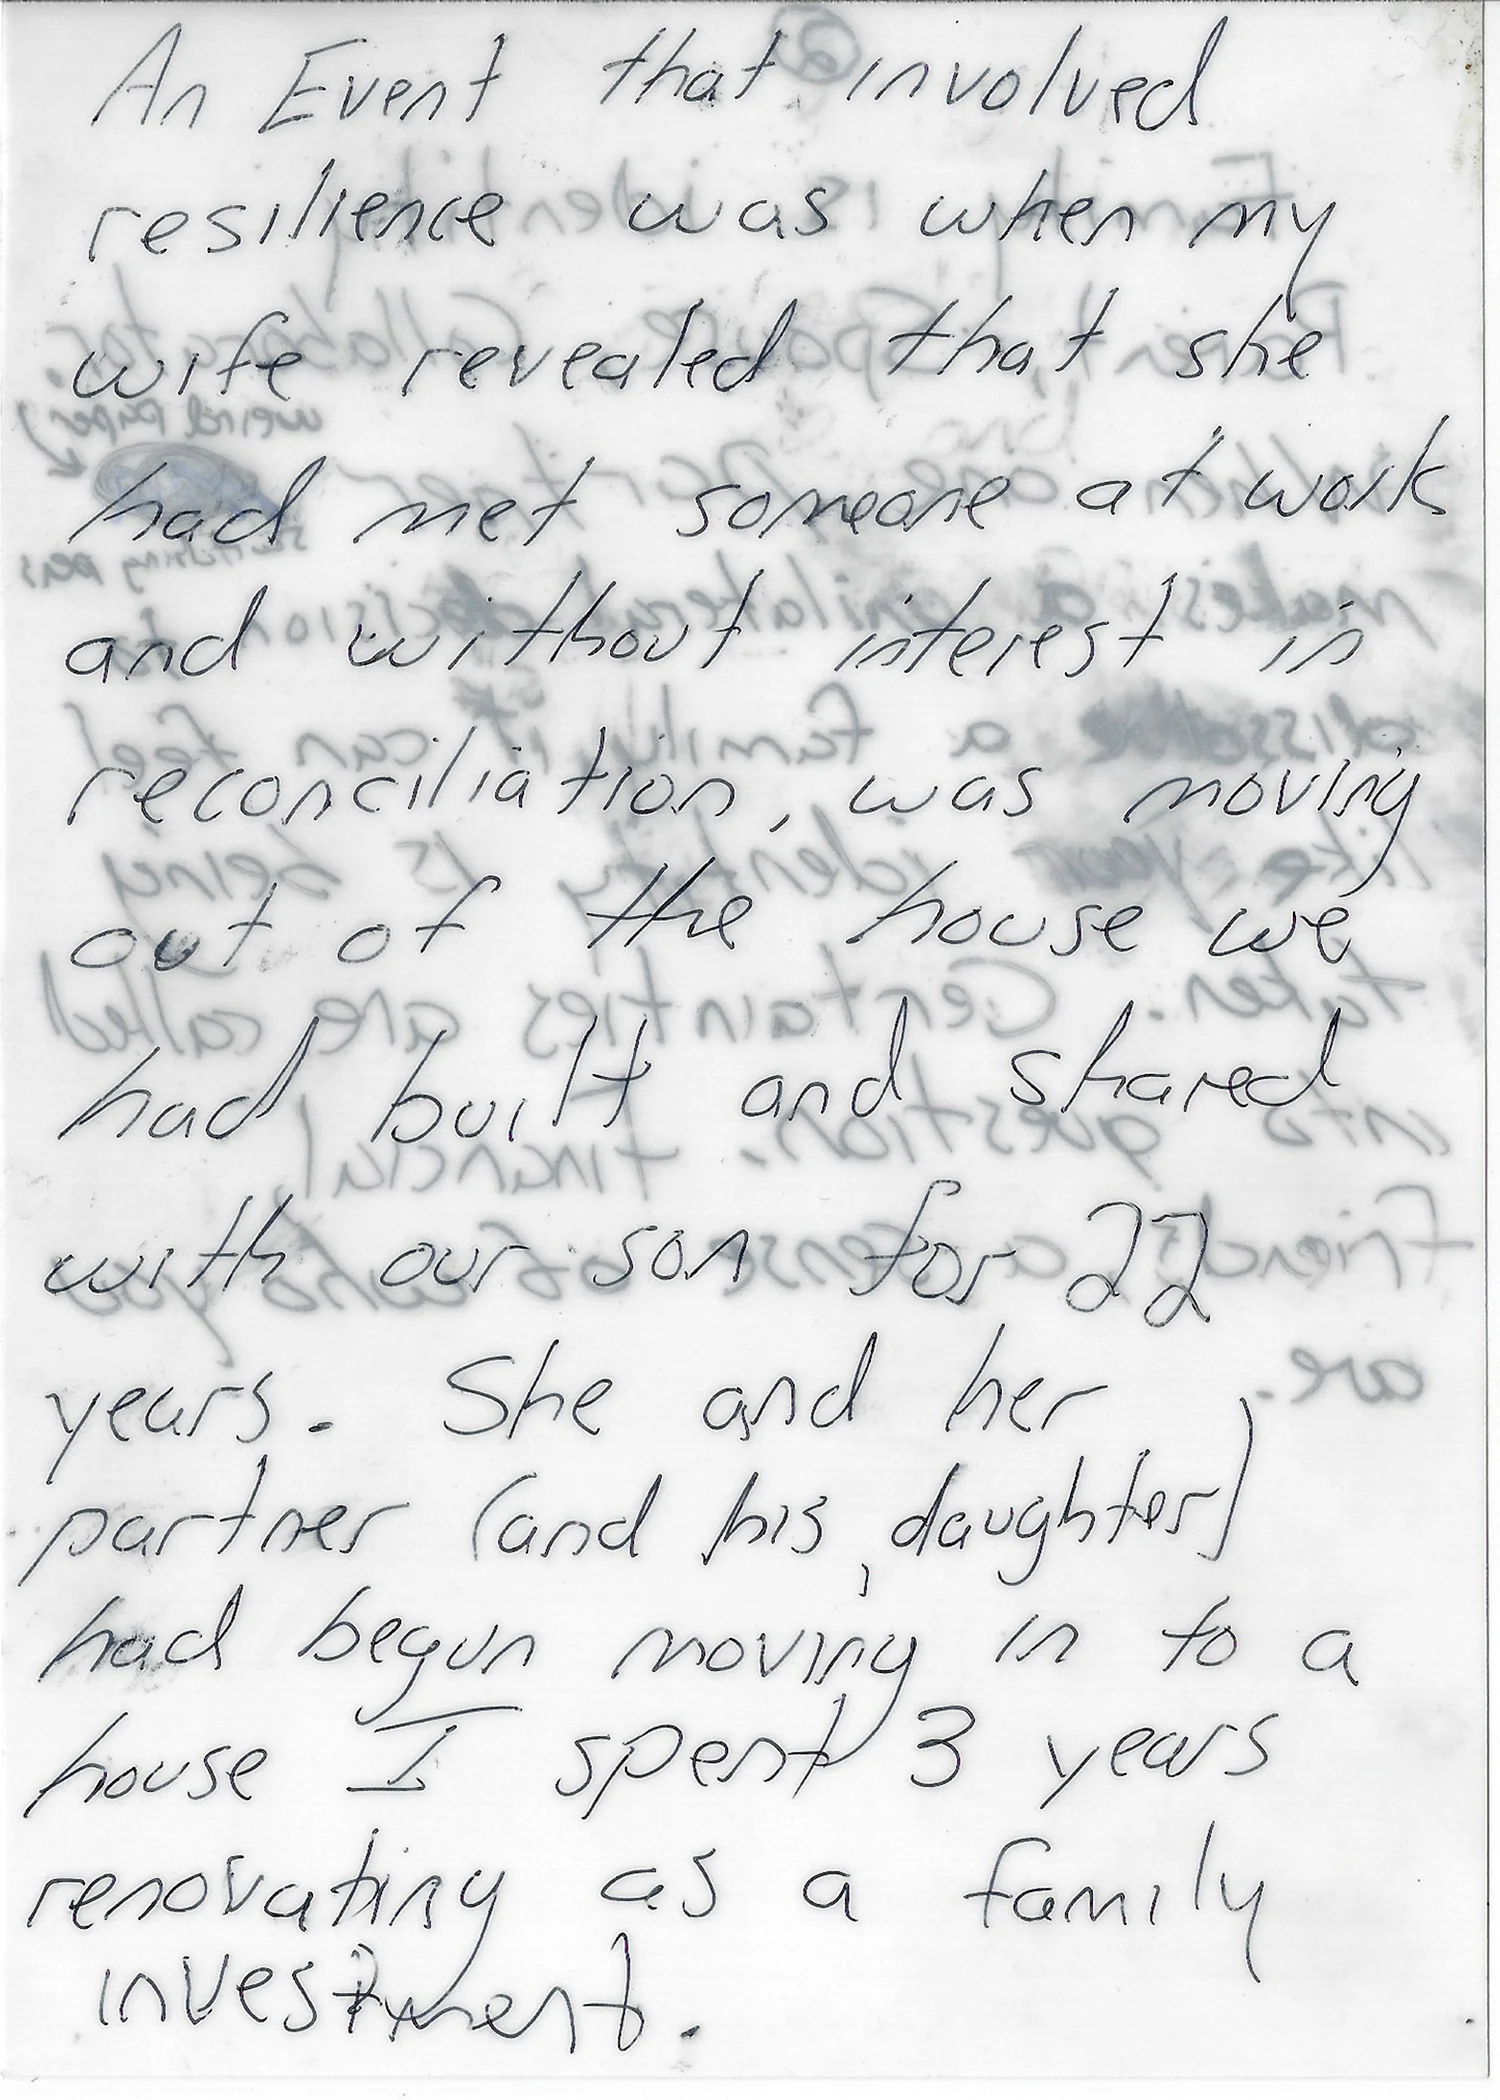 An Event that involved
resilience was when my
wife revealed that she
had met someone at work
and without interest in
reconciliation, was moving
out of the house we
had built and shared
with our son for 22
years. She and her
partner (and his daughter)
had begun moving in to a
house I spent 3 years
renovating as a family
investment.